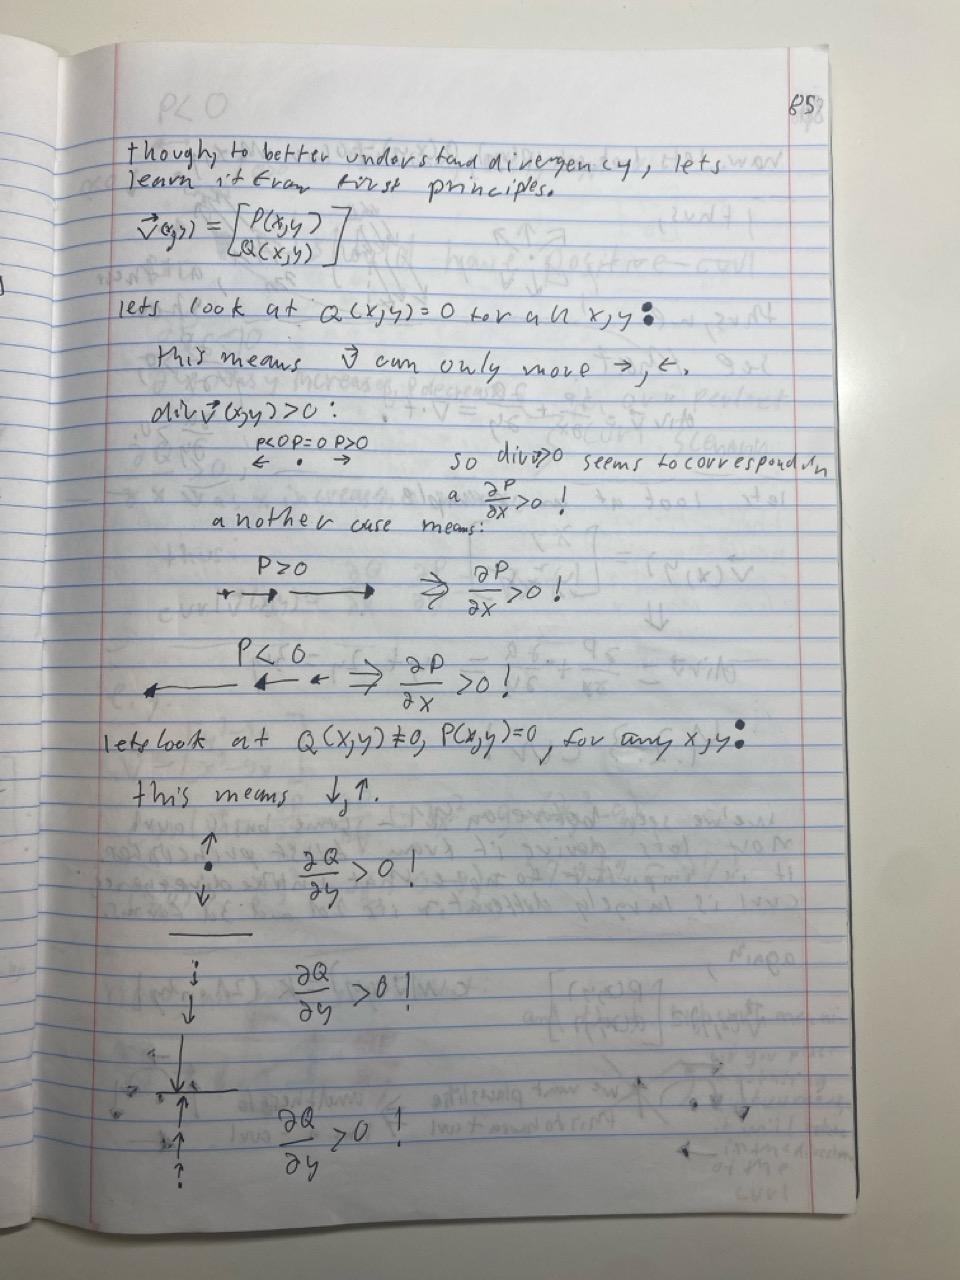 85
though, to better understand divergency, lets
learn it from first principles.
v⃗(x,y) = [P(x,y)
Q(x,y)]
lets look at Q(x,y)=0 for all x,y:
this means v⃗ can only move →, ←.
div v⃗(x,y)>0:
P<0 P=0 P>0
← • →
so div v⃗>0 seems to correspond in
a ∂P/∂x>0!
another case means:
P>0 ⇒ ∂P/∂x>0!
P<0 ⇒ ∂P/∂x>0!
lets look at Q(x,y)≠0, P(x,y)=0, for any x,y:
this means ↓,↑.
∂Q/∂y>0!
∂Q/∂y>0!
∂Q/∂y>0!